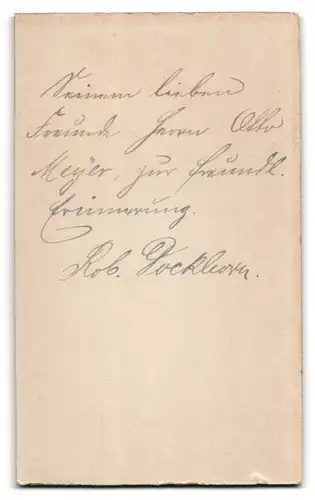 Seinem lieben
Freunde Herrn Otto
Meyer, zur freundl.
Erinnerung.
Rob. Dockhorn.